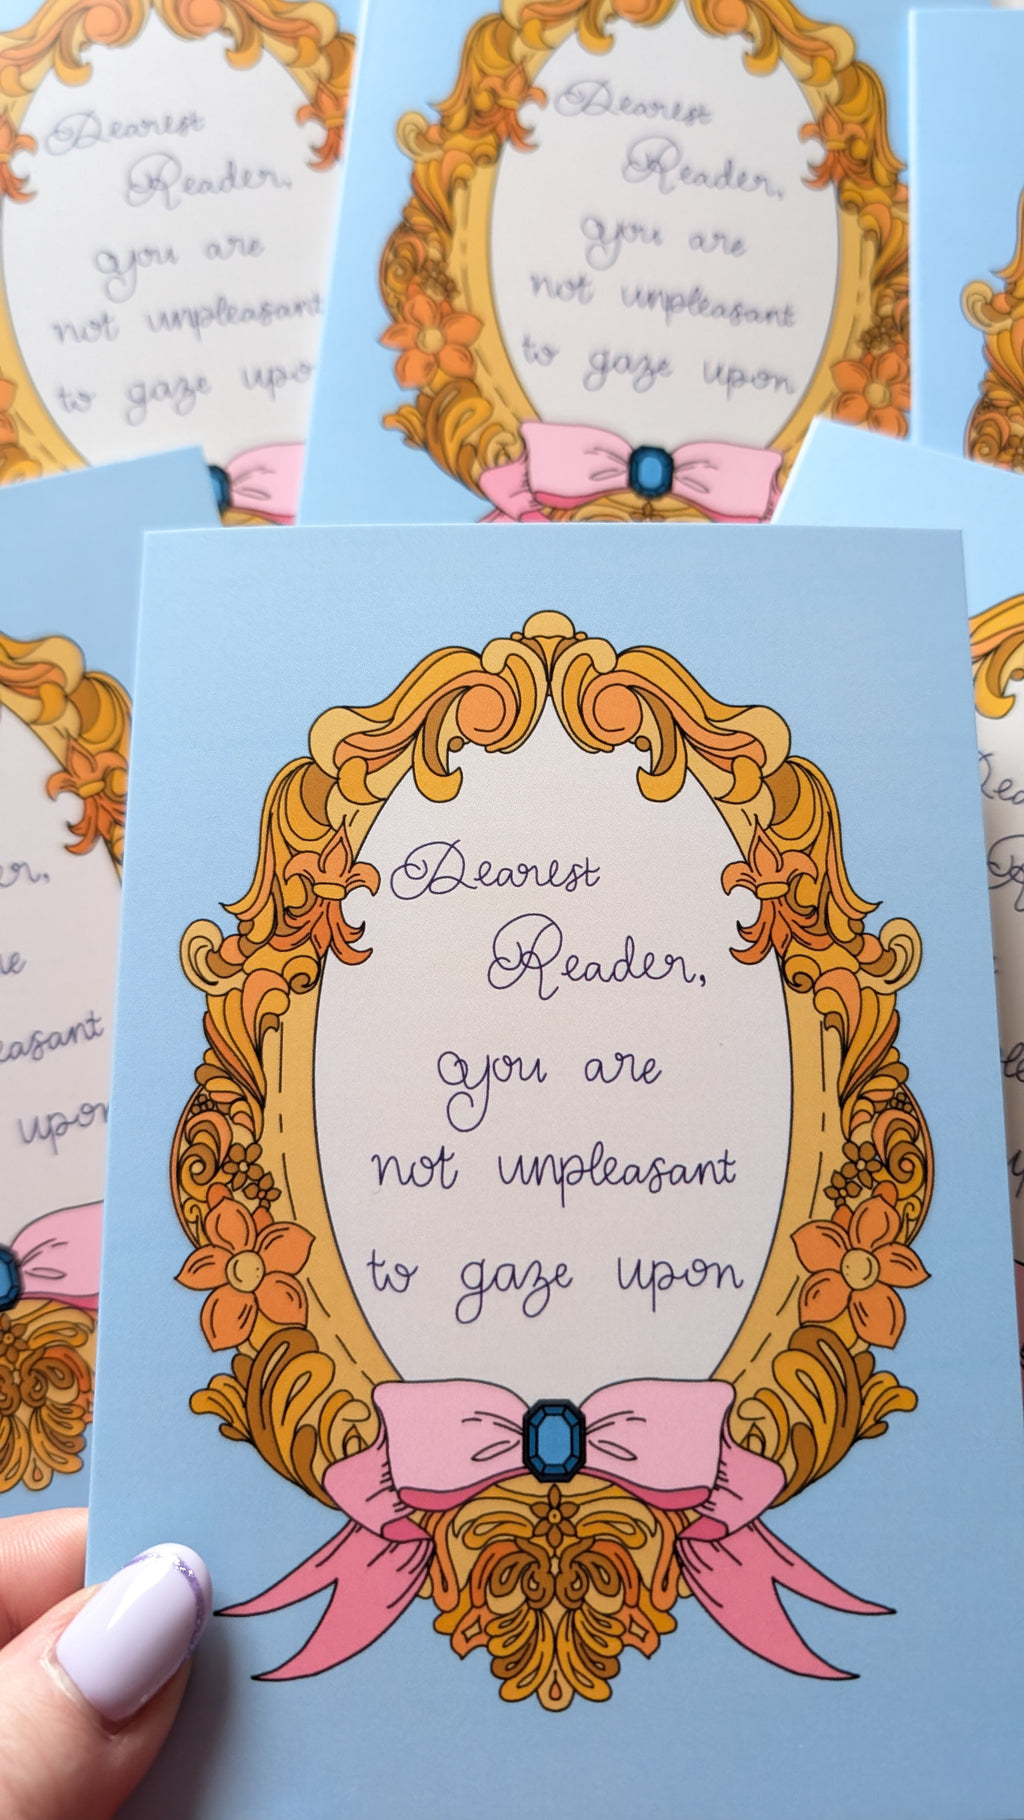 Dearest
Reader,
you are
not unpleasant
to gaze upo
Dearest
Reader,
you are
not unpleasant
to gaze upon
Dearest
Reader,
you are
not unpleasant
to gaze upon
upon